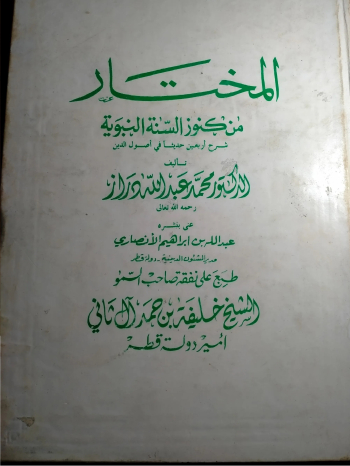 المختار
من كنوز السنة النبوية
شرح أربعين حديثا في أصول الدين
تأليف
الدكتور محمد عبد الله دراز
رحمه الله تعالى
عنى بنشره
عبد الله بن ابراهيم الأنصاري
مدير الشئون الدينية - دولة قطر
طبع على نفقة صاحب السمو
الشيخ خليفة بن حمد آل ثاني
أمير دولة قطر